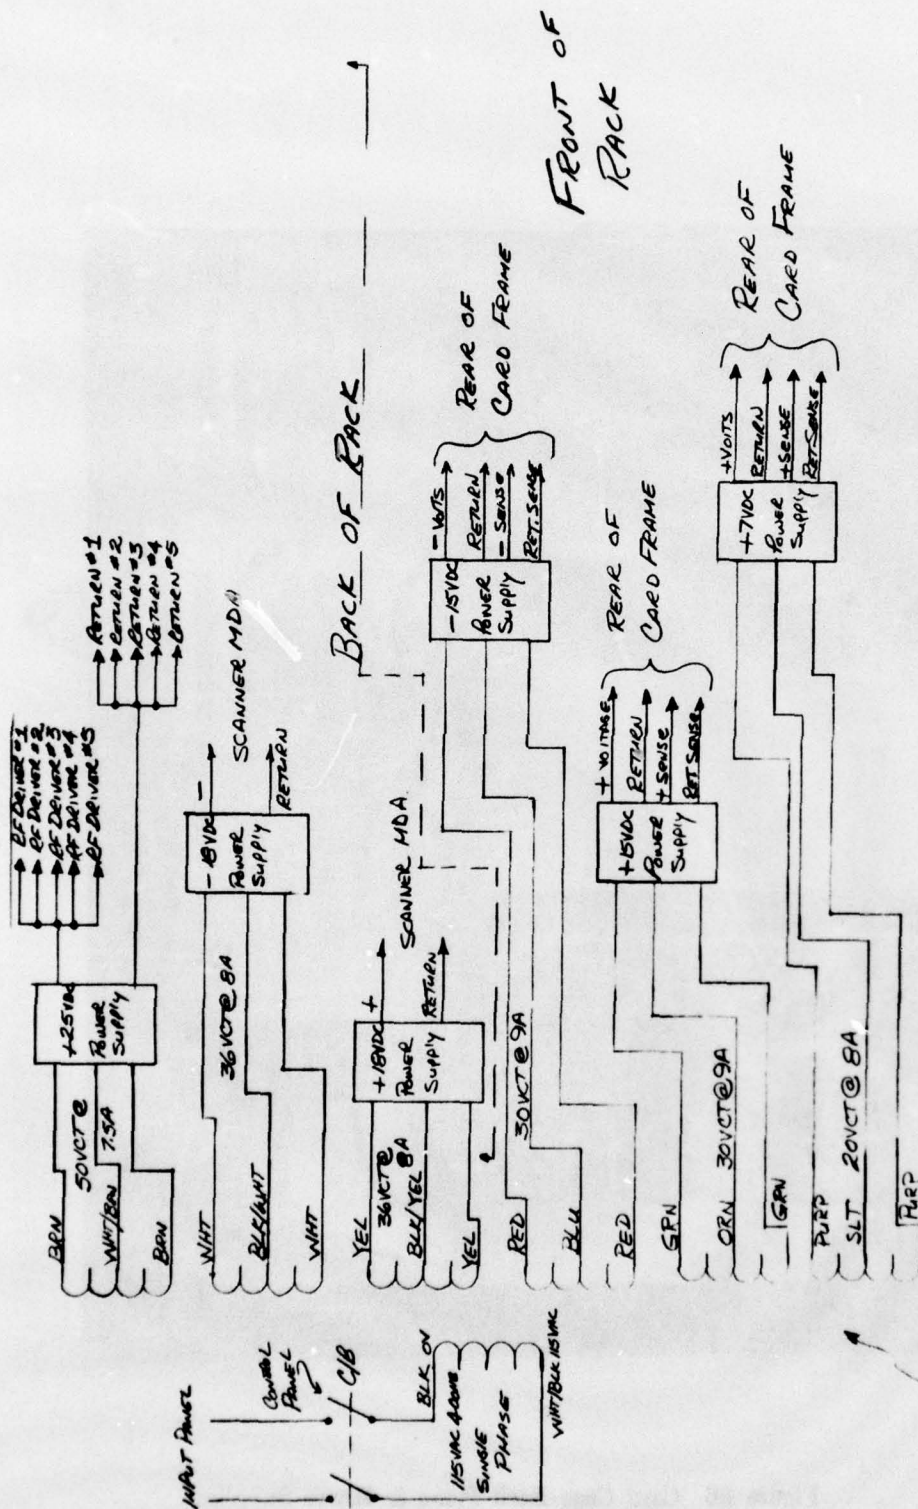 INPUT PANEL
CONTROL
PANEL
C/B
BLK OV
115VAC 400HZ
SINGLE
PHASE
WHT/BLK 115VAC
BRN
50VCT @
7.5A
WHT/BRN
BRN
+25VDC
POWER
SUPPLY
RF DRIVER #1
RF DRIVER #2
RF DRIVER #3
RF DRIVER #4
RF DRIVER #5
RETURN #1
RETURN #2
RETURN #3
RETURN #4
RETURN #5
WHT
36VCT @ 8A
BLK/WHT
WHT
-18VDC
POWER
SUPPLY
-
SCANNER MDA
RETURN
YEL
36VCT @
8A
BLK/YEL
YEL
+18VDC
POWER
SUPPLY
+
SCANNER MDA
RETURN
BACK OF RACK
FRONT OF
RACK
RED
30VCT @ 9A
BLU
RED
-15VDC
POWER
SUPPLY
- VOLTS
RETURN
- SENSE
RET. SENSE
REAR OF
CARD FRAME
GRN
ORN 30VCT @ 9A
GRN
+15VDC
POWER
SUPPLY
+ VOLTAGE
RETURN
+ SENSE
RET SENSE
REAR OF
CARD FRAME
PURP
SLT 20VCT @ 8A
PURP
+7VDC
POWER
SUPPLY
+VOLTS
RETURN
+SENSE
RET SENSE
REAR OF
CARD FRAME